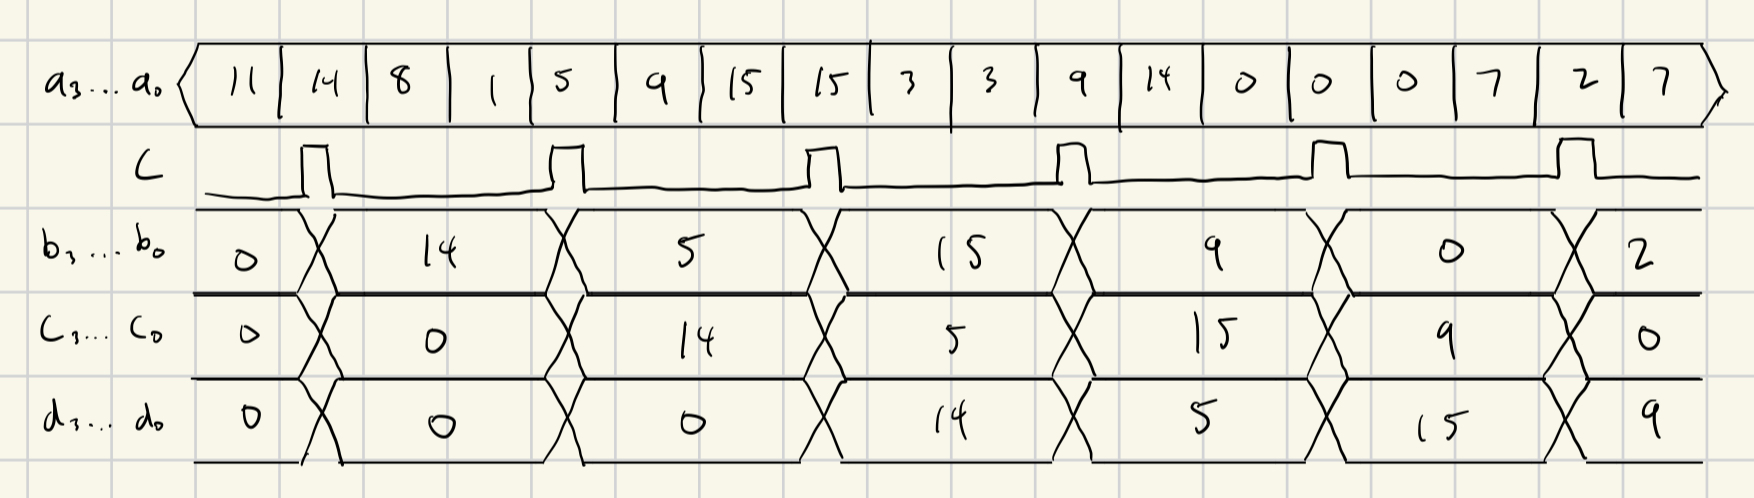 a₃...a₀ 11 14 8 1 5 9 15 15 3 3 9 14 0 0 0 7 2 7
C
b₃...b₀ 0 14 5 15 9 0 2
C₃...C₀ 0 0 14 5 15 9 0
d₃...d₀ 0 0 0 14 5 15 9